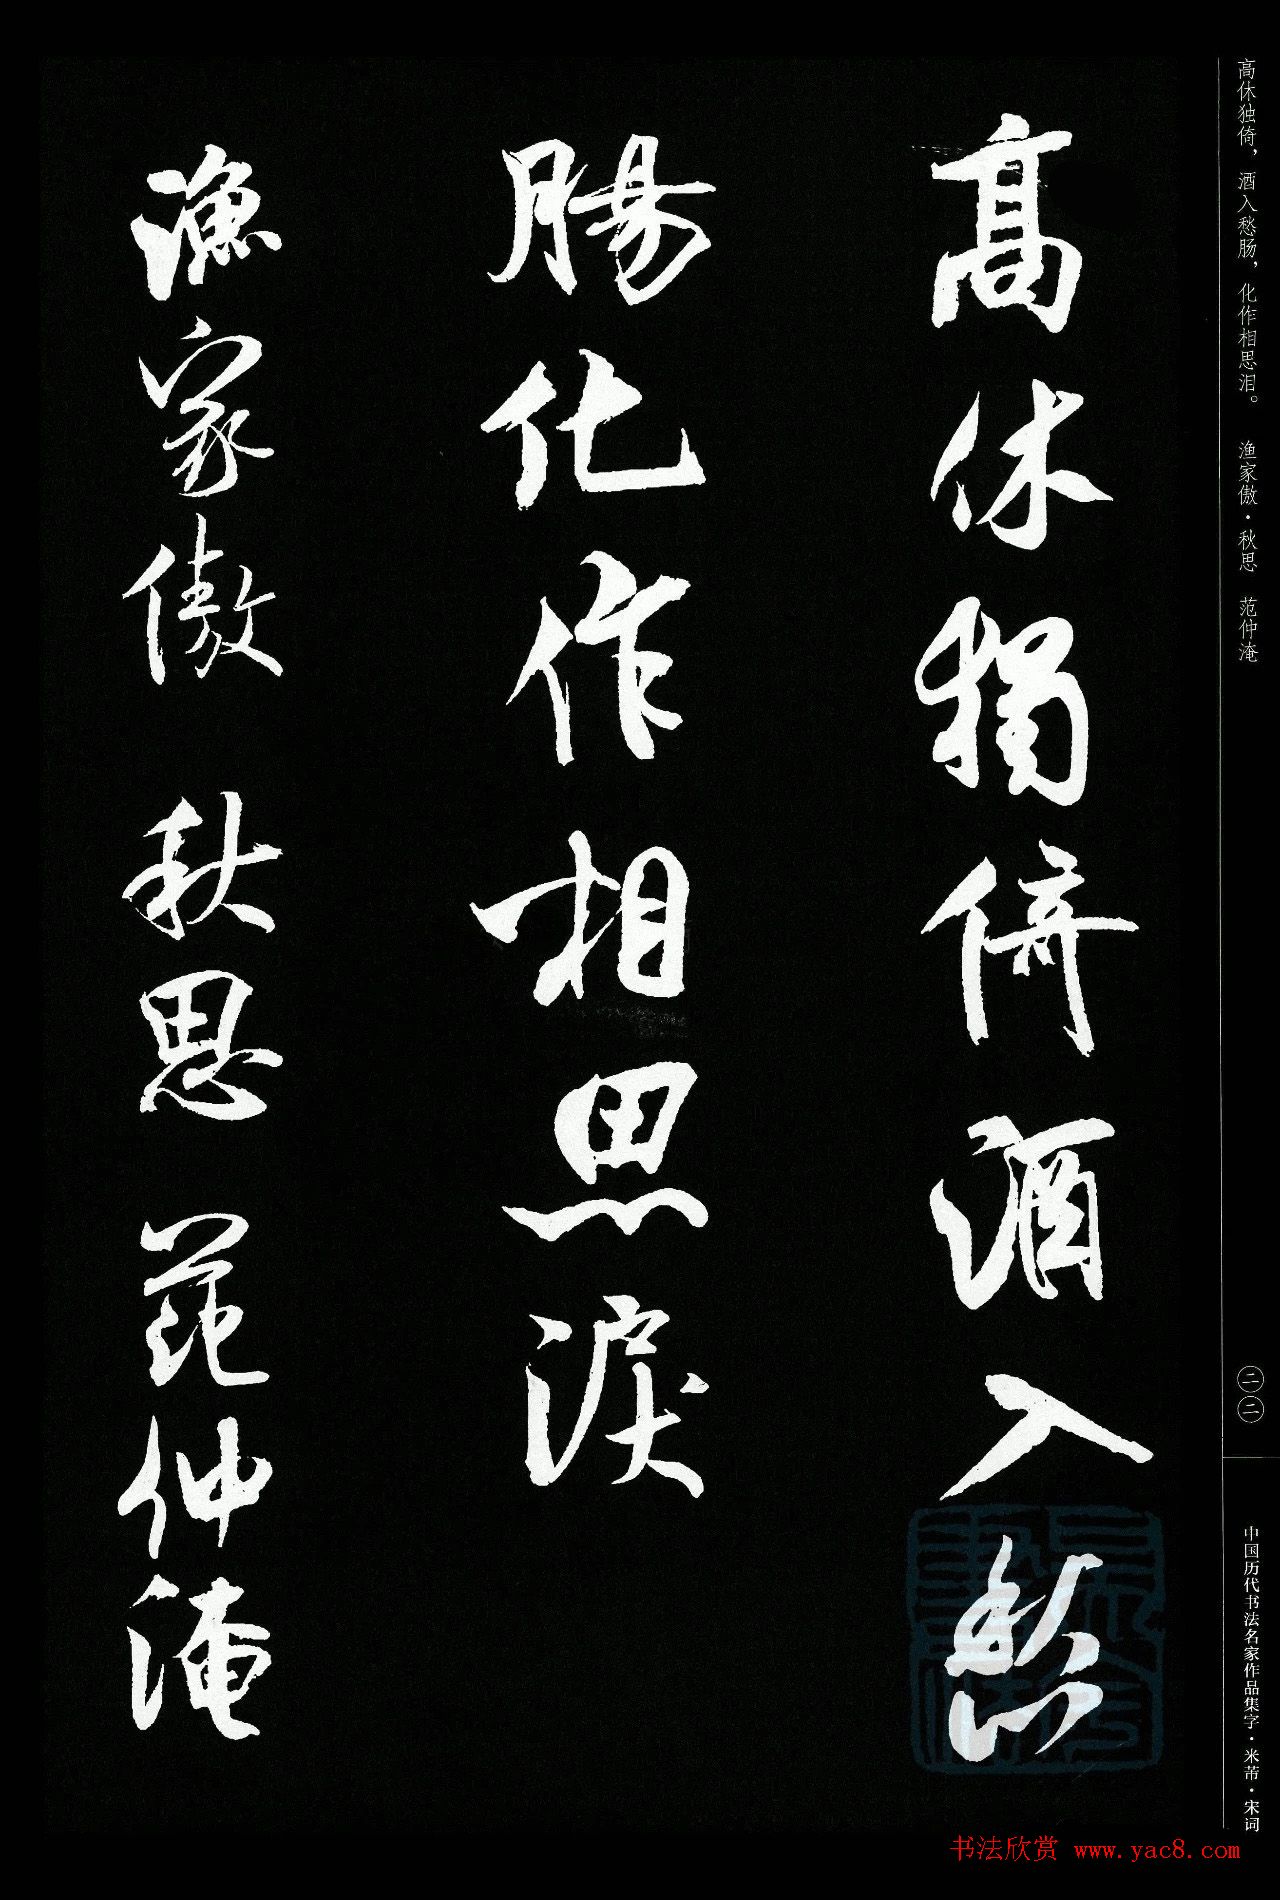 高休独倚，酒入愁肠，化作相思泪。 渔家傲·秋思 范仲淹
二二
中国历代书法名家作品集字·米芾·宋词
高休獨倚酒入愁
腸化作相思淚
漁家傲 秋思 范仲淹
书法欣赏 www.yac8.com